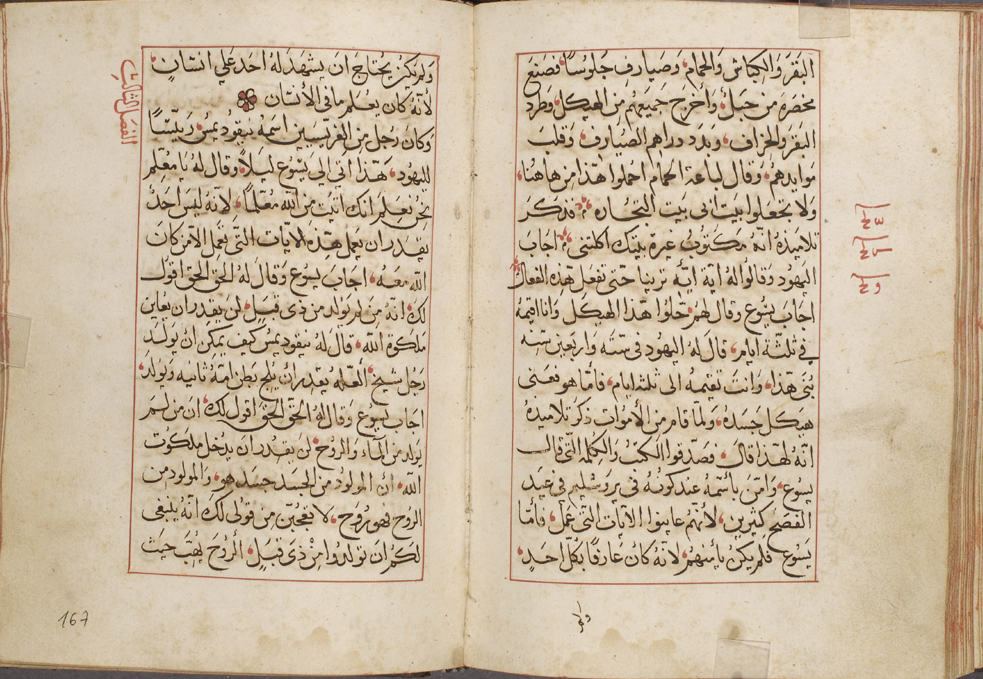 البقر والكباش والحمام، وصيارف جلوسًا، فصنع
مخصرة من حبل، وأخرج جميعهم من الهيكل، وطرد
البقر والخراف، وبدد دراهم الصيارف، وقلب
موايدهم، وقال لباعة الحمام احملوا هذا من هاهنا،
ولا تجعلوا بيت ابى بيت التجارة، فذكر
تلاميذه انه مكتوب غيرة بيتك اكلتنى، اجاب
اليهود وقالوا له اية اية ترينا حتى تفعل هذه الفعال
اجاب يسوع وقال لهم، حلوا هذا الهيكل وانا اقيمه
في ثلثة ايام، قال له اليهود فى ستة واربعين سنه
بنى هذا، وانت تقيمه الى ثلثه ايام، فأما هو فعنى
هيكل جسده، ولما قام من الأموات ذكر تلاميذه
انه لهذا قال، فصدقوا الكتب والكلمه التى قالها
يسوع، وآمن باسمه عند كونه فى يروشليم في عيد
الفصح كثيرين، لأنهم عاينوا الآيات التي عمل، فأما
يسوع فلم يكن يأمنهم لانه كان عارفا بكل احد،
ولم يكن يحتاج ان يشهد له احد علي انسان،
لأنه كان يعلم ما فى الأنسان
الفصل الثالث
وكان رجل من الفريسيين اسمه نيقوديمس، رييسًا
لليهود، هذا اتى الي يسوع ليلاً، وقال له يا معلم
نحن نعلم انك اتيت من الله معلمًا، لأنه ليس احد
يقدر ان يعمل هذه الايات التى تعمل الا من كان
الله معه، اجاب يسوع وقال له الحق الحق اقول
لك، انه من لم يولد من ذى قبل، لن يقدر ان يعاين
ملكوة الله، قال له نيقوديمس كيف يمكن ان يولد
رجل شيخ، ألعله يقدر ان يلج بطن امه ثانيه ويولد،
اجاب يسوع وقال له الحق الحق اقول لك، ان من لم
يولد من الماء والروح، لن يقدر ان يدخل ملكوت
الله، ان المولود من الجسد جسد هو، والمولود من
الروح فهو روح، لا تعجبن من قولى لك انه ينبغى
لكم ان تولدوا من ذى قبل، الروح يهب حيث
167